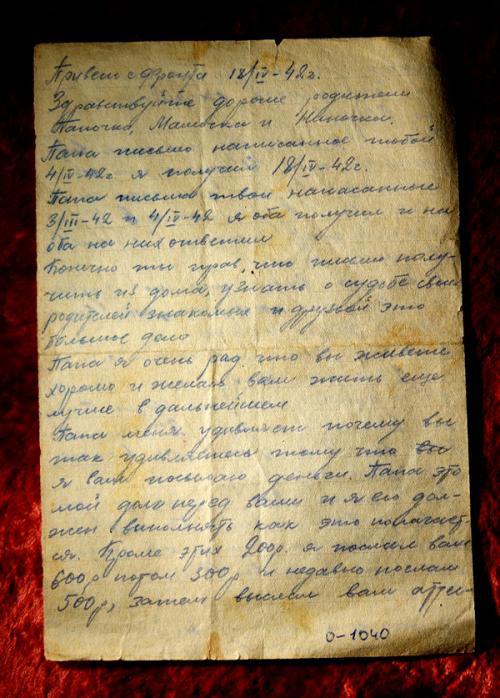 Привет с фронта 18/IV-42г.
Здравствуйте дорогие родители
Папочка, Мамочка и Ниночка.
Папа письмо написанное тобой
4/IV-42г я получил 18/IV-42г.
Папа письма твои написанные
3/III-42 и 4/IV-42 я оба получил и на
оба на них ответил
Конечно ты прав, что письмо полу-
чить из дома, узнать о судьбе своих
родителей знакомых и друзей это
большое дело
Папа я очень рад что вы живете
хорошо и желаю вам жить еще
лучше в дальнейшем
Папа меня удивляет почему вы
так удивляетесь тому что
я вам посылаю деньги. Папа это
мой долг перед вами и я его дол-
жен выполнять как это полагает-
ся. Кроме этих 200р. я послал вам
600р потом 300р и недавно послал
500р, затем выслал вам аттес-
0-1040